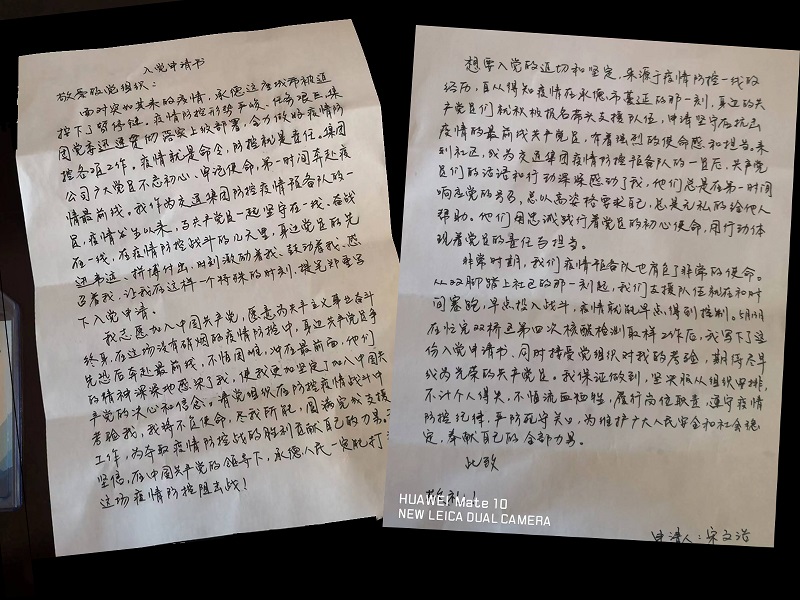 入党申请书
敬爱的党组织：
面对突如其来的疫情，承德这座城市被迫
按下了暂停键。疫情防控形势严峻、任务艰巨，集
团党委迅速贯彻落实上级部署，全力做好疫情防
控各项工作。疫情就是命令，防控就是责任。集团
公司广大党员不忘初心，牢记使命，第一时间奔赴疫
情最前线。我作为交通集团防控疫情预备队的一
员，疫情发生以来，与共产党员一起坚守在一线、奋战
在一线，在疫情防控战斗的几天里，身边党员的先
进事迹、拼搏付出，时刻激励着我、鼓动着我、感
写着我，让我在这样一个特殊的时刻，提笔郑重写
下入党申请。
我志愿加入中国共产党，愿意为共产主义事业奋斗
终身，在这场没有硝烟的疫情防控中，身边共产党员争
先恐后奔赴最前线，不惧困难，冲在最前面，他们
的精神深深地感染了我，使我更加坚定了加入中国共
产党的决心和信念。请党组织在防控疫情战斗中
考验我，我将不负使命，尽我所能，圆满完成支援
工作，为夺取疫情防控战的胜利贡献自己的力量。
坚信，在中国共产党的领导下，承德人民一定能打
这场疫情防控阻击战！
想要入党的迫切和坚定，来源于疫情防控一线的
经历，自从得知疫情在承德市蔓延的那一刻，身边的共
产党员们就积极报名参加支援队伍，申请坚守在抗击
疫情的最前线共产党员，有着强烈的使命感和担当。来
到社区，成为交通集团疫情防控预备队的一员后，共产党
员们的话语和行动深深感动了我，他们总是在第一时间
响应党的号召，总以高姿格要求自己，总是无私的给他人
帮助。他们用忠诚践行着党员的初心使命，用行动体
现着党员的责任与担当。
非常时期，我们疫情预备队也肩负了非常的使命。
从双脚踏上社区的那一刻起，我们支援队伍就在和时
间赛跑，早点投入战斗，疫情就能早点得到控制。5月1日
在忙完双桥区第四次核酸检测取样工作后，我写下了这
份入党申请书，同时接受党组织对我的考验，期待尽早
成为光荣的共产党员。我保证做到，坚决服从组织安排，
不计个人得失，不惜流血牺牲，履行岗位职责，遵守疫情
防控纪律，严防死守关口，为维护广大人民安全和社会稳
定，奉献自己的全部力量。
此致
敬礼！
申请人：宋文浩
HUAWEI Mate 10
NEW LEICA DUAL CAMERA